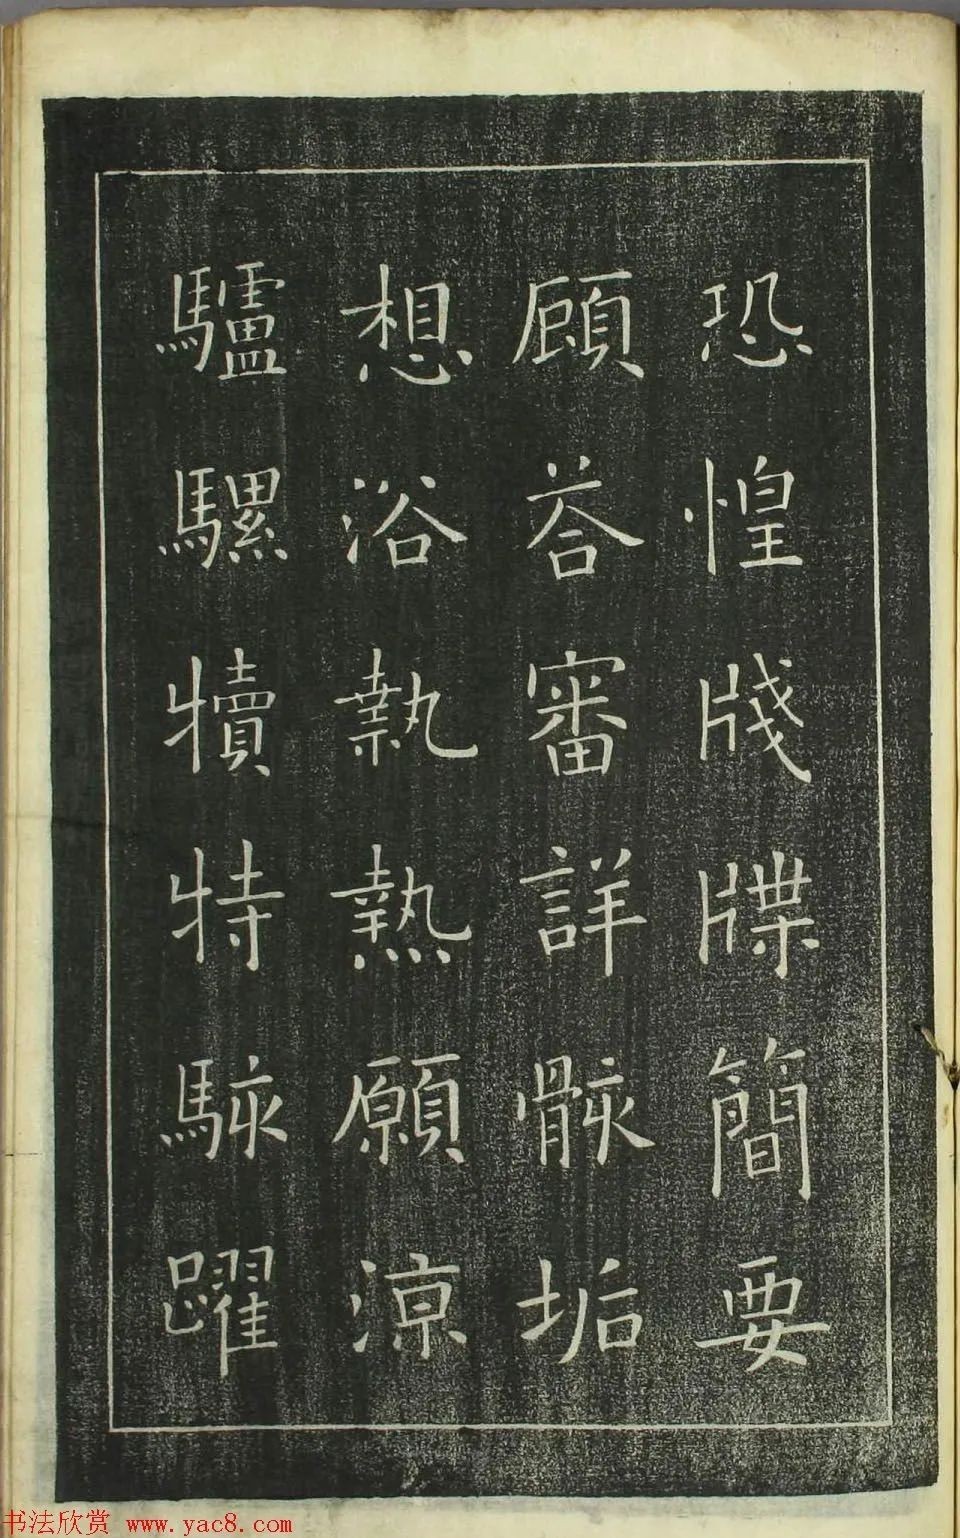 恐惶牋牒簡要
顧荅審詳骸垢
想浴執熱願凉
驢騾犢特駭躍
书法欣赏 www.yac8.com